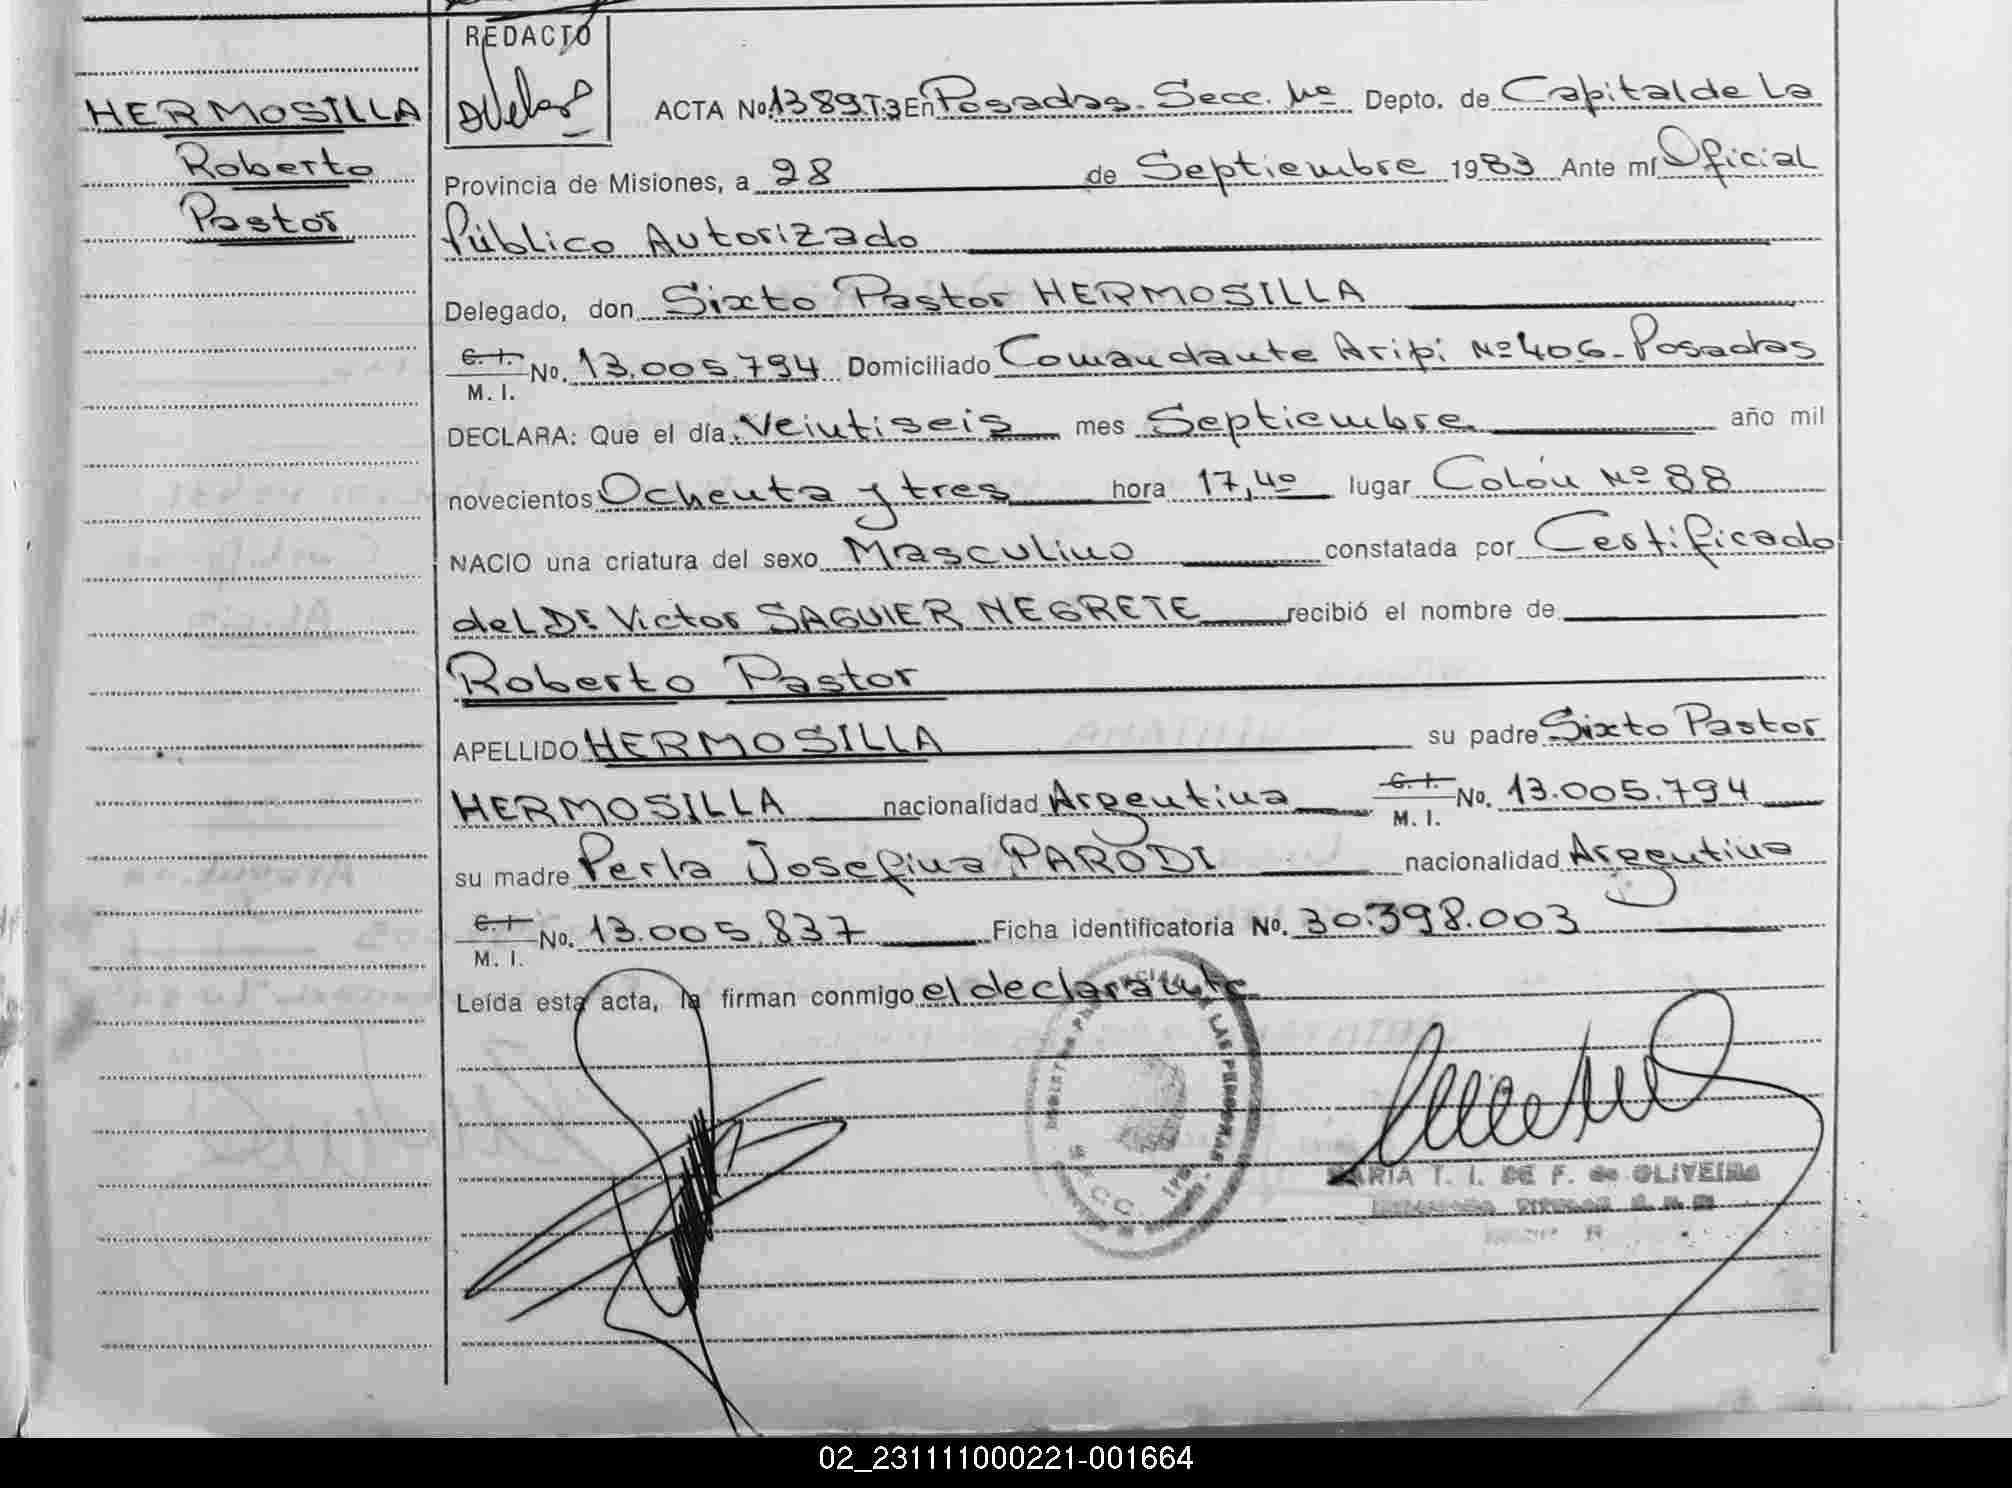 HERMOSILLA
Roberto
Pastor
REDACTO
ACTA No. 1389 T.3 En Posadas. Secc. Depto. de Capital de La
Provincia de Misiones, a 28 de Septiembre 1983 Ante mí Oficial
Público Autorizado
Delegado, don Sixto Pastor HERMOSILLA
C. I.
M. I. No. 13.005.794 Domiciliado Comandante Aripi Nº 406 - Posadas
DECLARA: Que el día Veintiseis mes Septiembre año mil
novecientos Ochenta y tres hora 17,40 lugar Colón Nº 88
NACIO una criatura del sexo Masculino constatada por Certificado
del Dr Victor SAGUIER NEGRETE recibió el nombre de
Roberto Pastor
APELLIDO HERMOSILLA su padre Sixto Pastor
HERMOSILLA nacionalidad Argentina C. I.
M. I. No. 13.005.794
su madre Perla Josefina PARODI nacionalidad Argentina
C. I.
M. I. No. 13.005.837 Ficha identificatoria No. 30.398.003
Leída esta acta, la firman conmigo el declarante
MARIA T. I. DE F. de OLIVEIRA
02_231111000221-001664